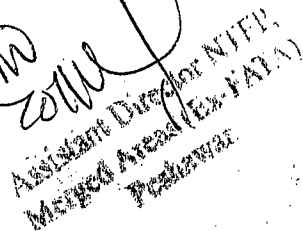 Assistant Director NTFP,
Merged Areas (Ex-FATA)
Peshawar